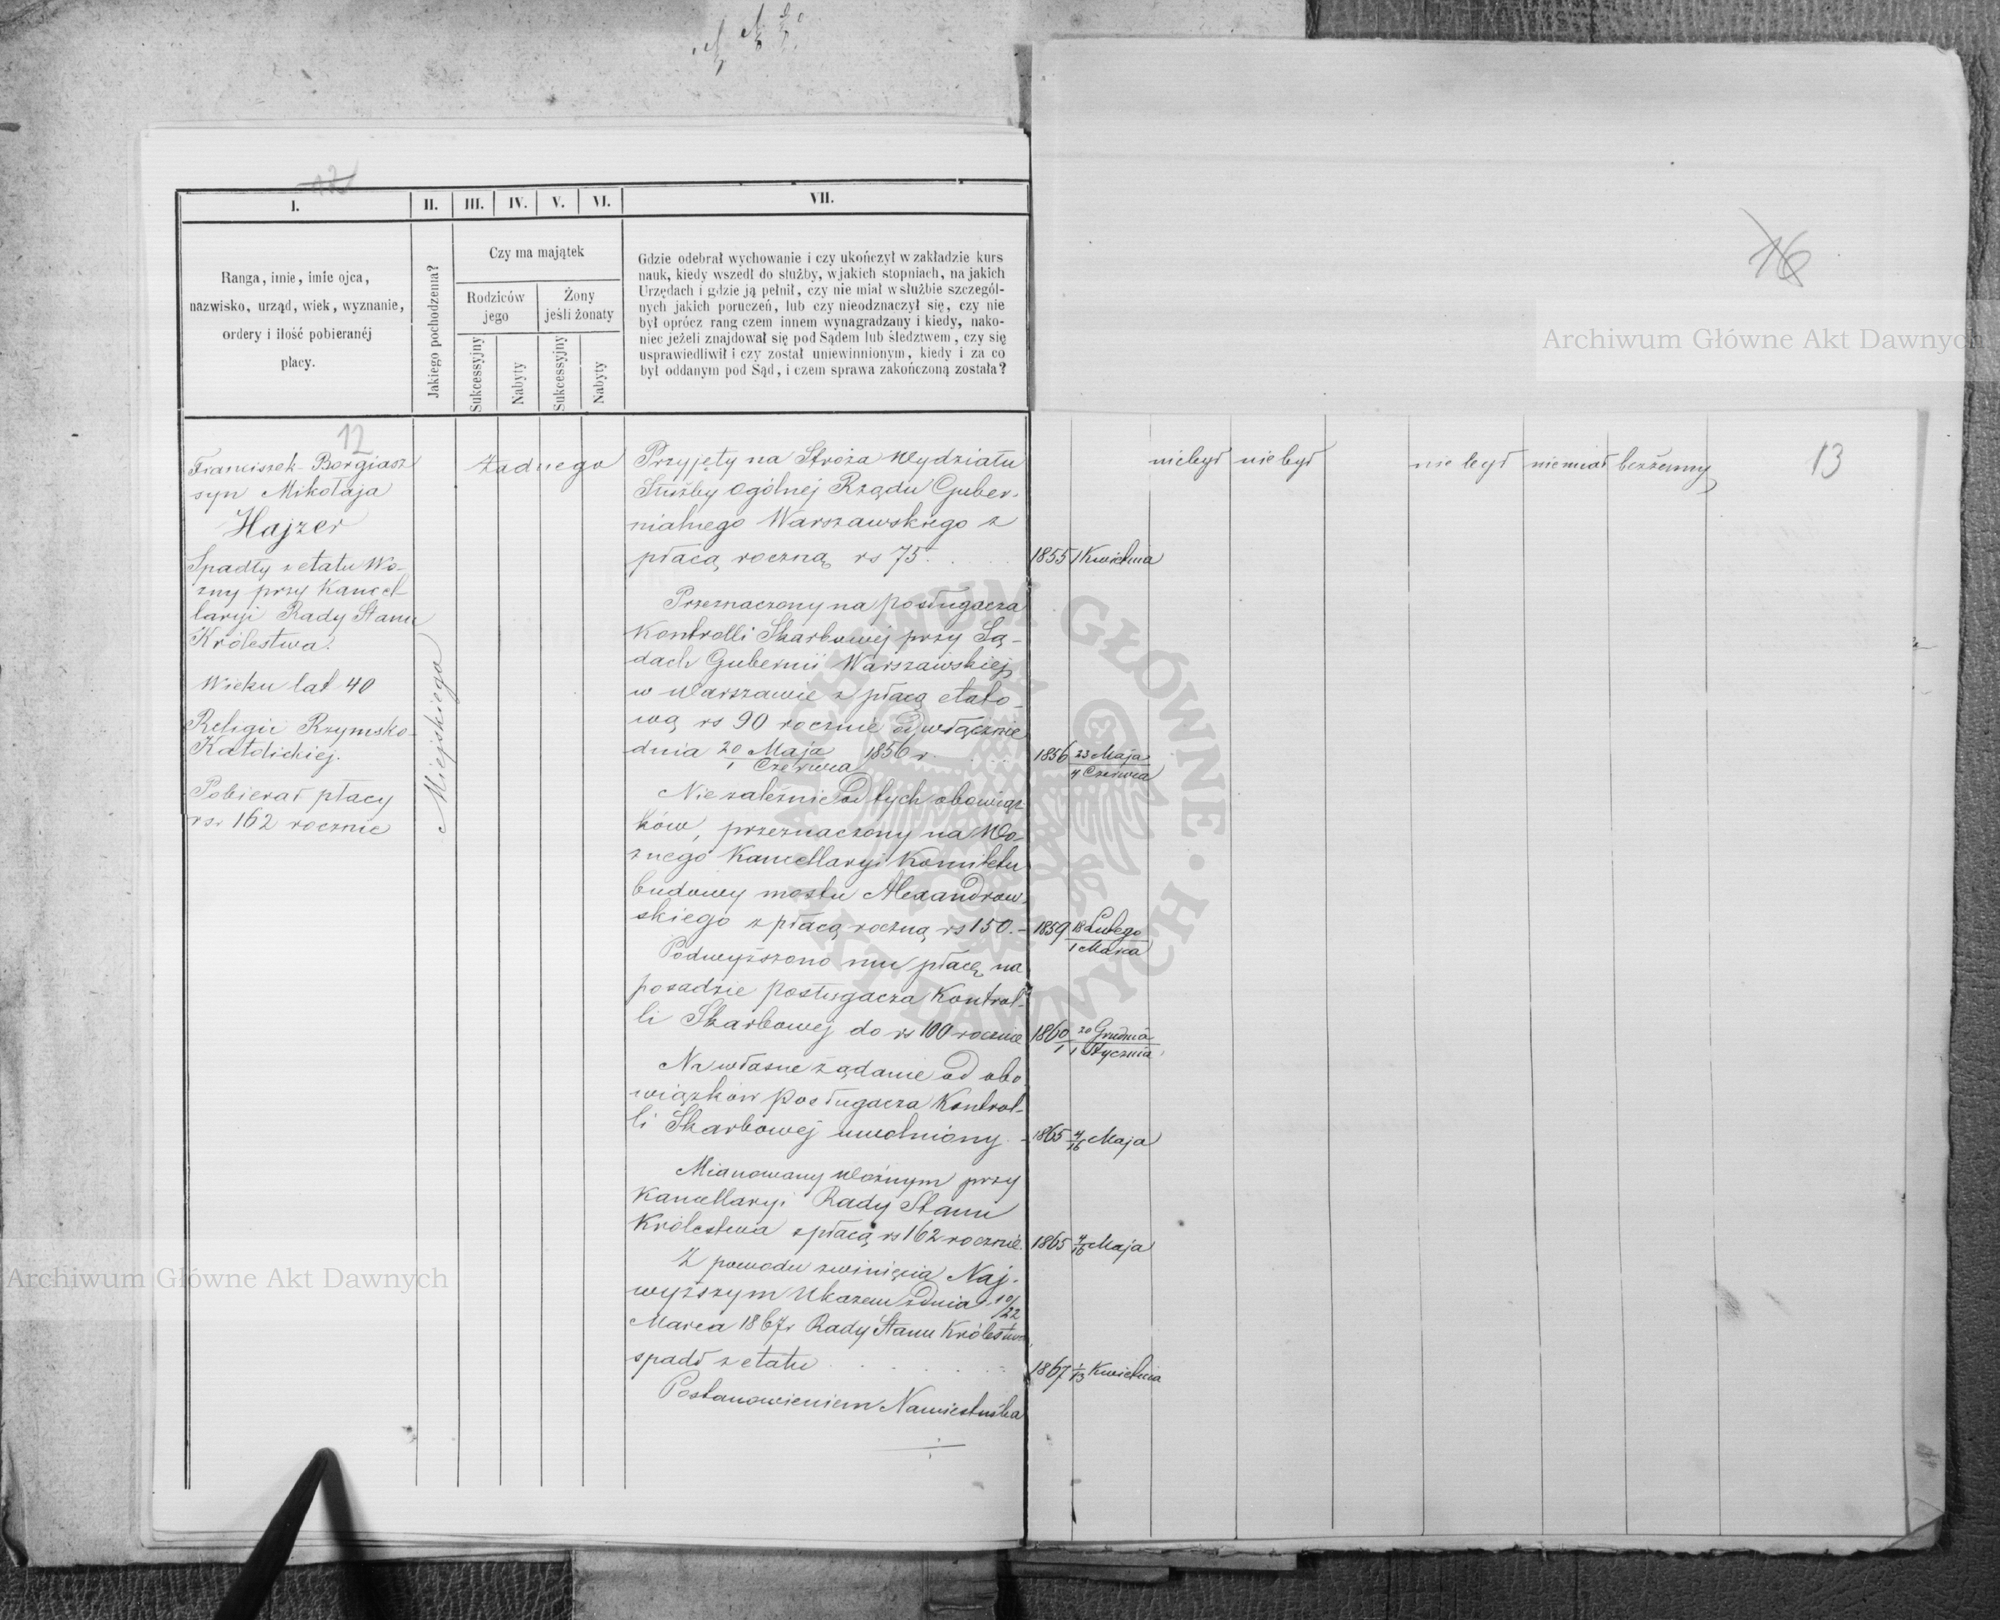 12
I.
II.
III.
IV.
V.
VI.
VII.
Ranga, imie, imie ojca,
nazwisko, urząd, wiek, wyznanie,
ordery i ilość pobieranéj
płacy.
Jakiego pochodzenia?
Czy ma majątek
Rodziców
jego
Żony
jeśli żonaty
Sukcessyjny
Nabyty
Sukcessyjny
Nabyty
Gdzie odebrał wychowanie i czy ukończył w zakładzie kurs
nauk, kiedy wszedł do służby, w jakich stopniach, na jakich
Urzędach i gdzie ją pełnił, czy nie miał w służbie szczegól-
nych jakich poruczeń, lub czy nieodznaczył się, czy nie
był oprócz rang czem innem wynagradzany i kiedy, nako-
niec jeżeli znajdował się pod Sądem lub śledztwem, czy się
usprawiedliwił i czy został uniewinnionym, kiedy i za co
był oddanym pod Sąd, i czem sprawa zakończoną została?
12
Franciszek Borgiasz
syn Mikołaja
Hajzer
Spadły z etatu Wo-
zny przy Kancel-
laryi Rady Stanu
Królestwa.
Wieku lat 40
Religii Rzymsko-
Katolickiej.
Pobierał płacy
rsr 162 rocznie
Miejskiego
żadnego
Przyjęty na Stróża Wydziału
Służby Ogólnej Rządu Guber-
nialnego Warszawskiego z
płacą roczną rs 75.
1855 1 Kwietnia
Przeznaczony na posługacza
Kontrolli Skarbowej przy Są-
dach Gubernii Warszawskiej
w Warszawie z płacą etato-
wą rs 90 rocznie od włącznie
dnia 20 Maja / 1 Czerwca 1856 r.
1856 23 Maja / 4 Czerwca
Niezależnie od tych obowiąz-
ków, przeznaczony na Wo-
znego Kancellaryi Komitetu
budowy mostu Alexandrow-
skiego z płacą roczną rs 150. -
1859 18 Lutego / 1 Marca
Podwyższono mu płacę na
posadzie posługacza Kontrol-
li Skarbowej do rs 100 rocznie
1860/1 20 Grudnia / 1 Stycznia
Na własne żądanie od obo-
wiązków posługacza Kontrol-
li Skarbowej uwolniony. -
1865 4/16 Maja
Mianowany woźnym przy
Kancellaryi Rady Stanu
Królestwa z płacą rs 162 rocznie.
1865 4/16 Maja
Z powodu zwinięcia Naj-
wyższym Ukazem z dnia 10/22
Marca 1867 r Rady Stanu Królestwa
spadł z etatu
1867 1/13 Kwietnia
Postanowieniem Namiestnika
niebył
nie był
nie był
niemiał
bezżenny
16
13
Archiwum Główne Akt Dawnych
Archiwum Główne Akt Dawnych
ARCHIWUM GŁÓWNE AKT DAWNYCH